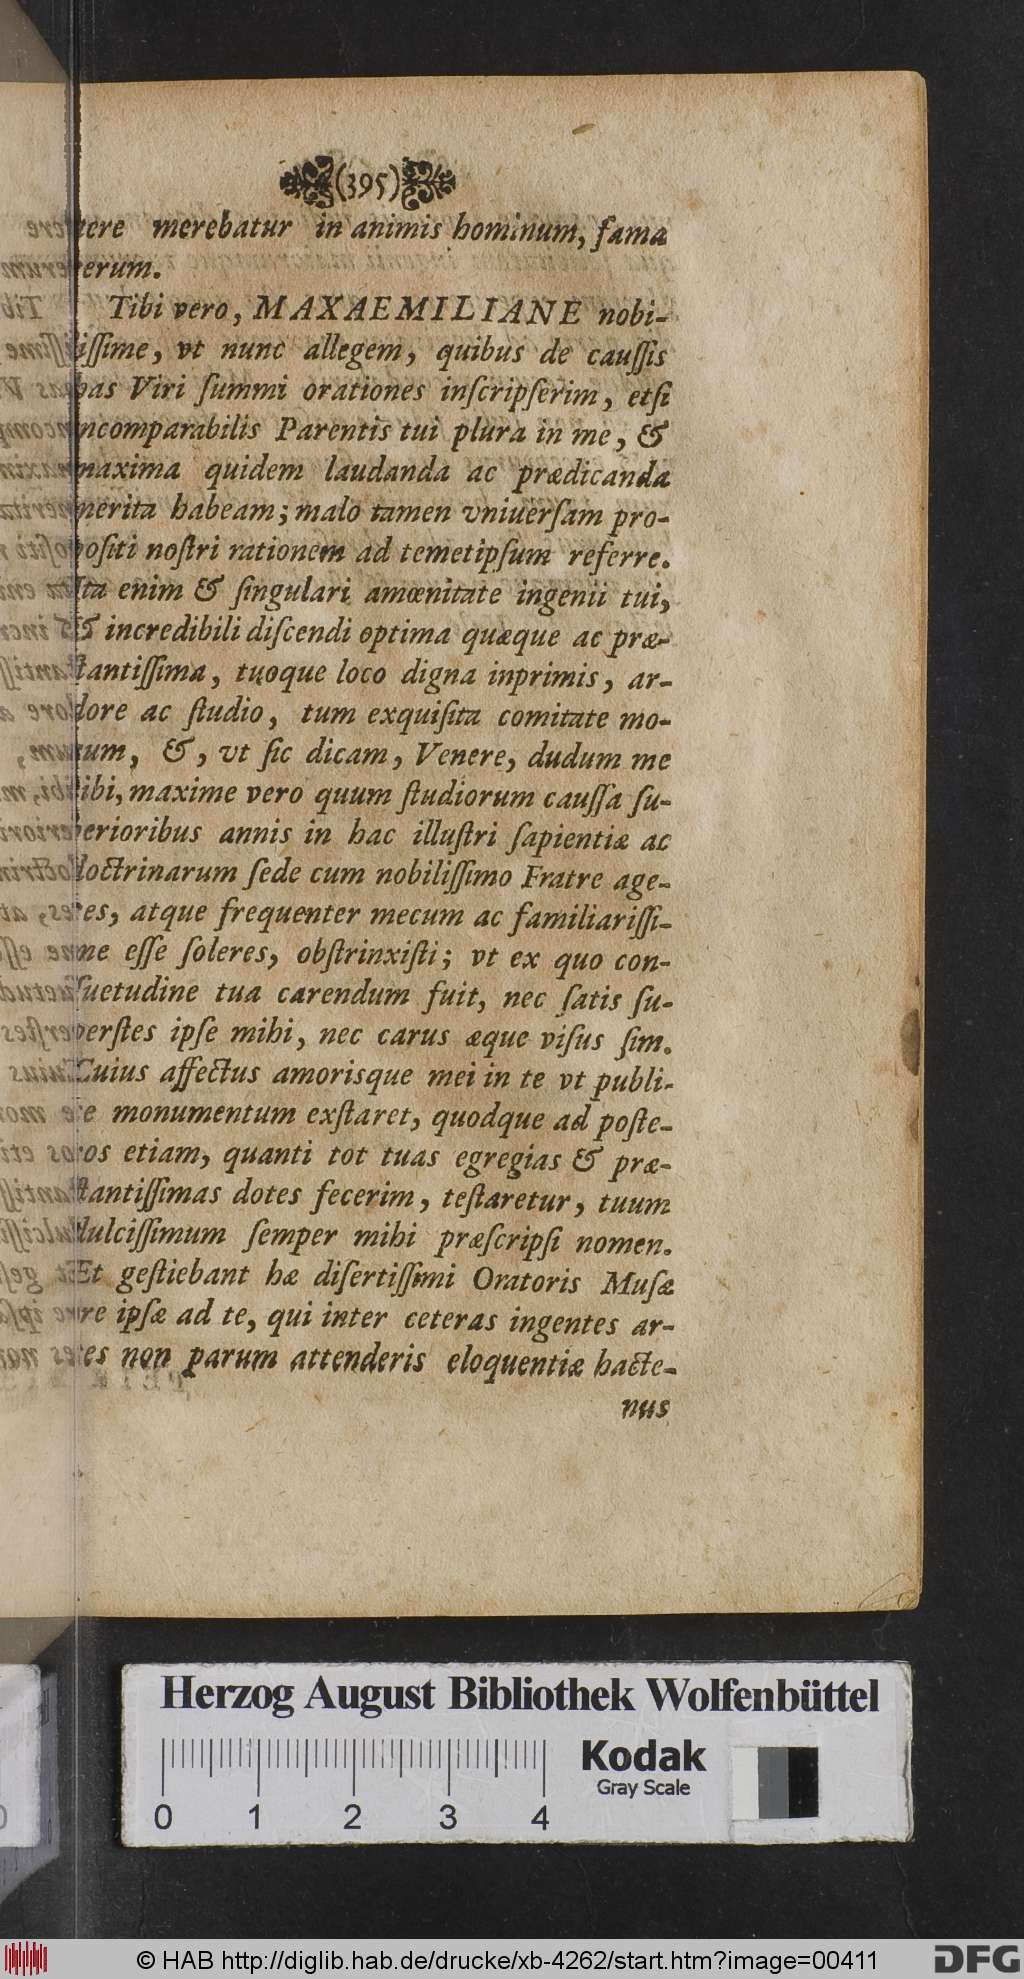 (395)
tere merebatur in animis hominum, fama
rerum.
Tibi vero, MAXAEMILIANE nobi-
liſſime, vt nunc allegem, quibus de cauſſis
has Viri ſummi orationes inſcripſerim, etſi
incomparabilis Parentis tui plura in me, &
maxima quidem laudanda ac prædicanda
merita habeam; malo tamen vniuerſam pro-
poſiti noſtri rationem ad temetipſum referre.
Ita enim & ſingulari amœnitate ingenii tui,
& incredibili diſcendi optima quæque ac præ-
ſtantiſſima, tuoque loco digna inprimis, ar-
dore ac ſtudio, tum exquiſita comitate mo-
rum, &, vt ſic dicam, Venere, dudum me
tibi, maxime vero quum ſtudiorum cauſſa ſu-
perioribus annis in hac illuſtri ſapientiæ ac
doctrinarum ſede cum nobiliſſimo Fratre age-
res, atque frequenter mecum ac familiariſſi-
me eſſe ſoleres, obſtrinxiſti; vt ex quo con-
ſuetudine tua carendum fuit, nec ſatis ſu-
perſtes ipſe mihi, nec carus æque viſus ſim.
Cuius affectus amorisque mei in te vt publi-
ce monumentum exſtaret, quodque ad poſte-
ros etiam, quanti tot tuas egregias & præ-
ſtantiſſimas dotes fecerim, teſtaretur, tuum
dulciſſimum ſemper mihi præſcripſi nomen.
Et geſtiebant hæ diſertiſſimi Oratoris Muſæ
ire ipſæ ad te, qui inter ceteras ingentes ar-
tes non parum attenderis eloquentiæ hacte-
nus
Herzog August Bibliothek Wolfenbüttel
Kodak
Gray Scale
0 1 2 3 4
© HAB http://diglib.hab.de/drucke/xb-4262/start.htm?image=00411
DFG